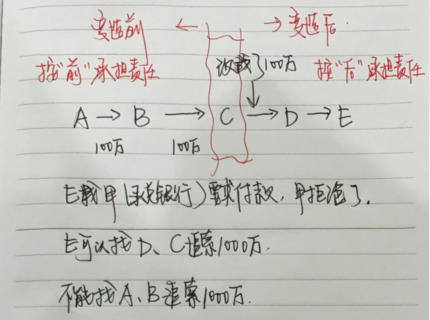 变造前 ← → 变造后
按“前”承担责任 改载了100万 按“后”承担责任
A → B → C → D → E
100万 100万
E找甲(承兑银行)要求付款，甲拒绝了.
E可以找D、C追索1000万.
不能找A、B追索1000万.